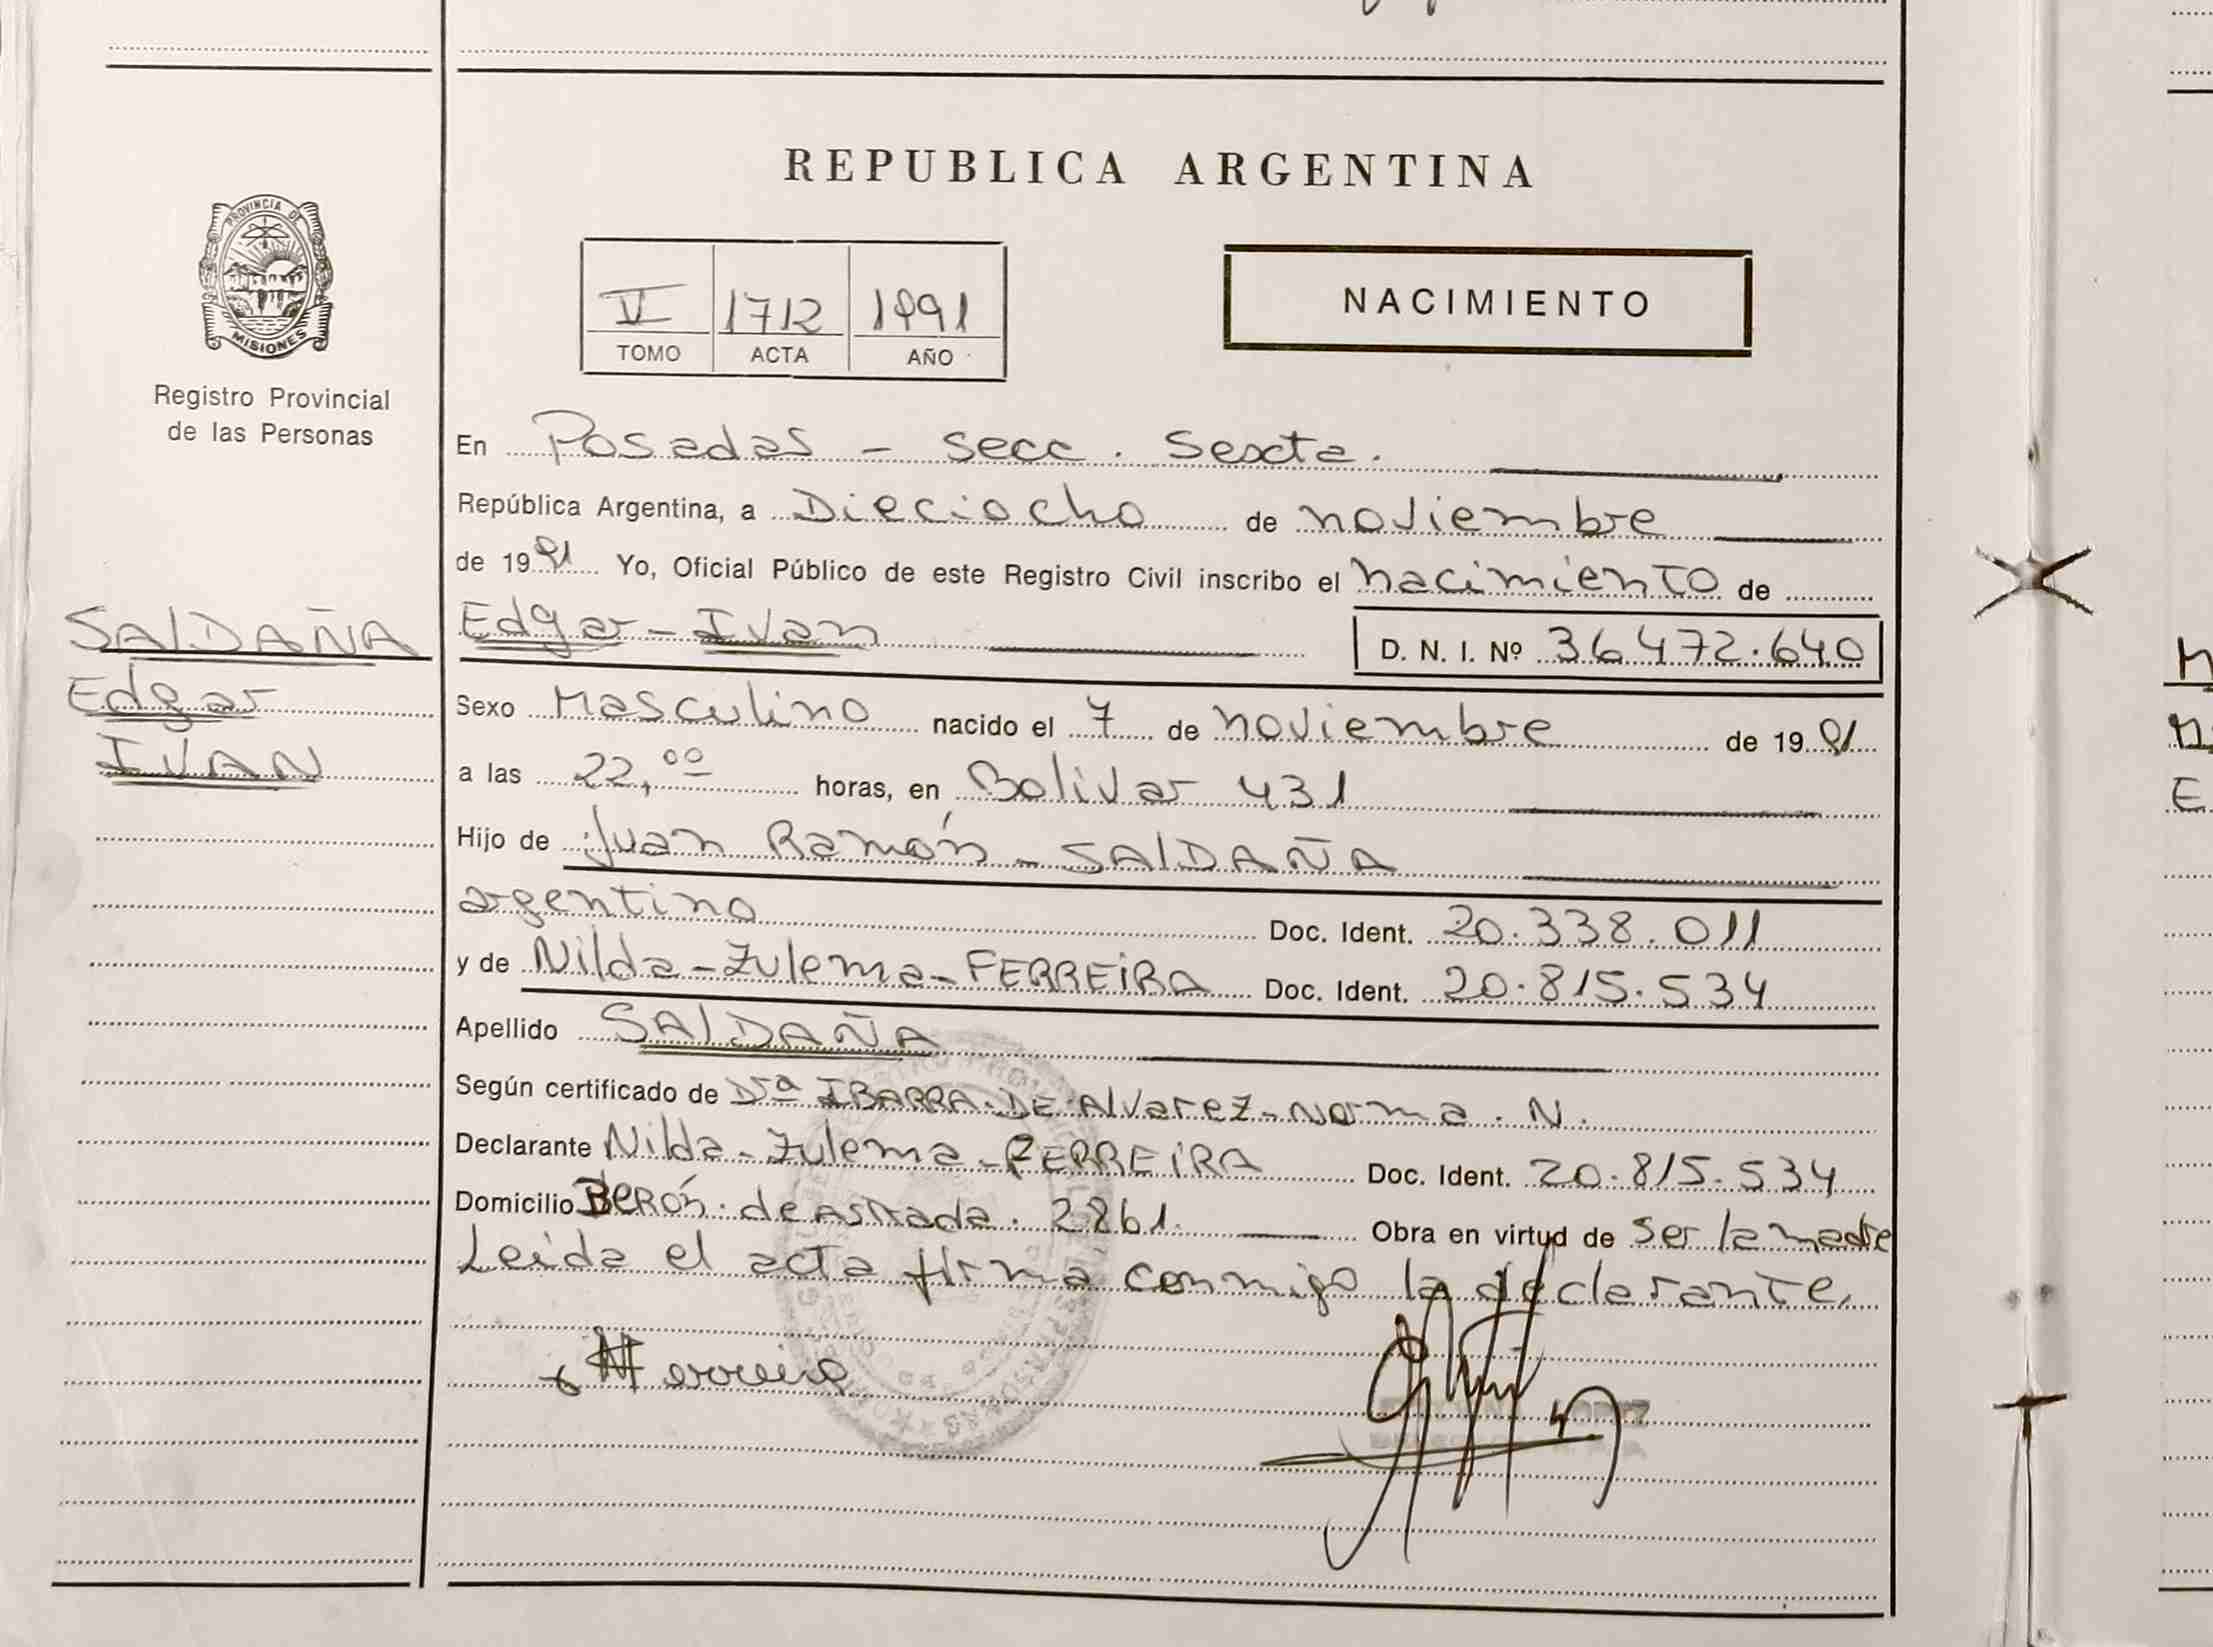 REPUBLICA ARGENTINA
PROVINCIA DE
MISIONES
Registro Provincial
de las Personas
V 1712 1991
TOMO ACTA AÑO
NACIMIENTO
En Posadas - Secc. Sexta.
República Argentina, a Dieciocho de noviembre
de 1991 Yo, Oficial Público de este Registro Civil inscribo el nacimiento de
SALDAÑA
Edgar
IVAN
Edgar - Ivan D. N. I. Nº 36472.640
Sexo Masculino nacido el 7 de noviembre de 1991
a las 22,00 horas, en Bolivar 431
Hijo de Juan Ramón - SALDAÑA
argentino Doc. Ident. 20.338.011
y de Nilda - Zulema - FERREIRA Doc. Ident. 20.815.534
Apellido SALDAÑA
Según certificado de Dra IBARRA DE Alvarez - Norma. N.
Declarante Nilda - Zulema - FERREIRA Doc. Ident. 20.815.534
Domicilio BERÓN de Astrada. 2861. Obra en virtud de ser la madre
Leida el acta firma conmigo la declarante.
NFerreira
M
E